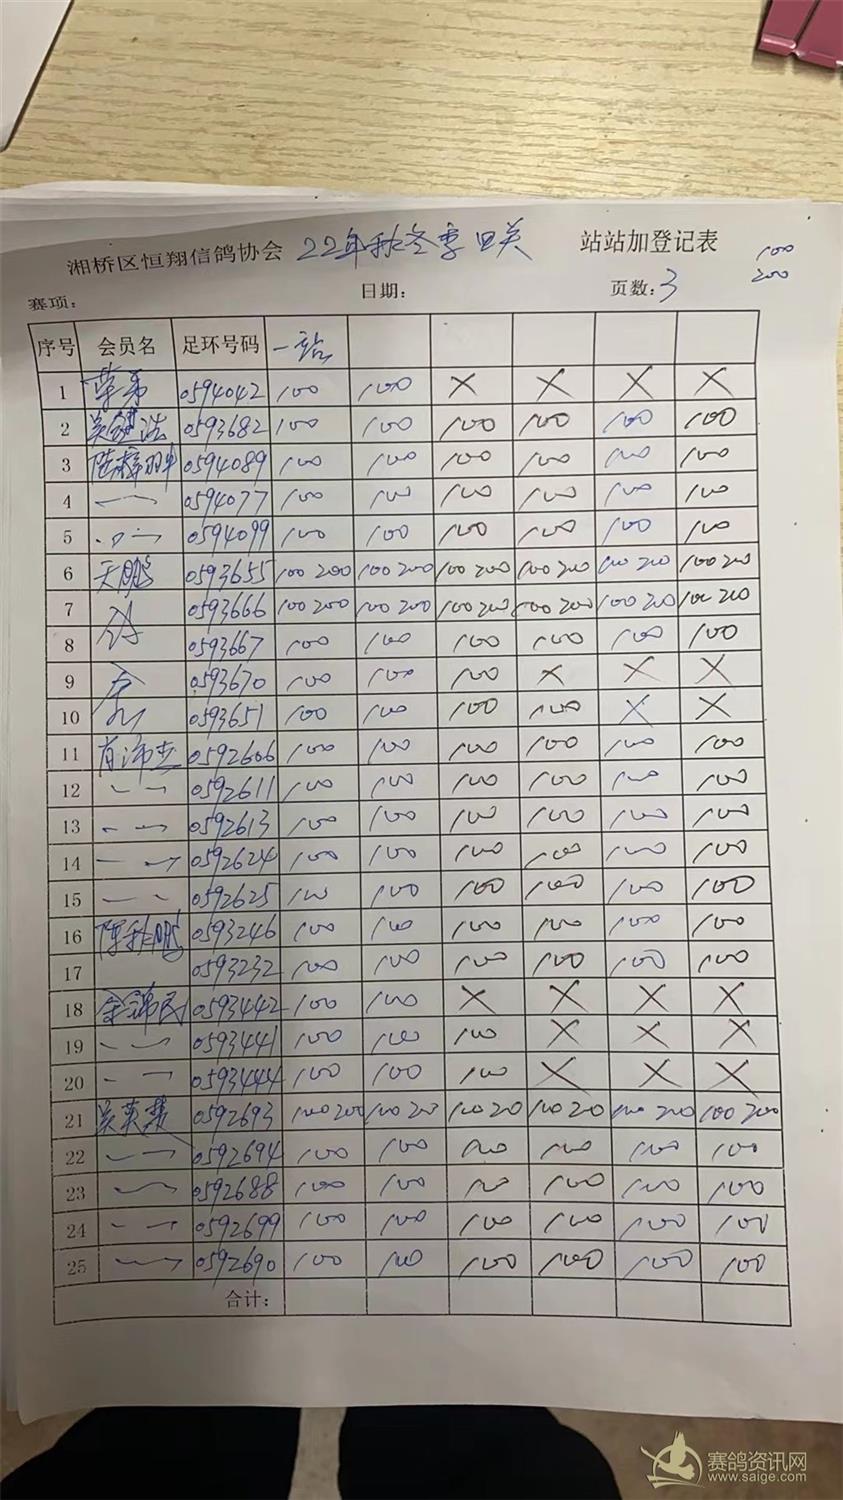 湘桥区恒翔信鸽协会 22年秋冬季四关 站站加登记表 100
赛项： 日期： 页数：3 200
序号 会员名 足环号码 一站
1 0594042 100 100 × × × ×
2 0593682 100 100 100 100 100 100
3 0594089 100 100 100 100 100 100
4 〃 0594077 100 100 100 100 100 100
5 〃 0594099 100 100 100 100 100 100
6 天鹏 0593655 100 200 100 200 100 200 100 200 100 200 100 200
7 0593666 100 200 100 200 100 200 100 200 100 200 100 200
8 0593667 100 100 100 100 100 100
9 0593670 100 100 100 × × ×
10 0593651 100 100 100 100 × ×
11 0592606 100 100 100 100 100 100
12 〃 0592611 100 100 100 100 100 100
13 〃 0592613 100 100 100 100 100 100
14 〃 0592624 100 100 100 100 100 100
15 〃 0592625 100 100 100 100 100 100
16 0593246 100 100 100 100 100 100
17 0593232 100 100 100 100 100 100
18 余锦民 0593442 100 100 × × × ×
19 〃 0593441 100 100 100 × × ×
20 〃 0593444 100 100 100 × × ×
21 0592693 100 200 100 200 100 200 100 200 100 200 100 200
22 〃 0592694 100 100 100 100 100 100
23 〃 0592688 100 100 100 100 100 100
24 〃 0592699 100 100 100 100 100 100
25 〃 0592690 100 100 100 100 100 100
合计：
赛鸽资讯网
www.saige.com